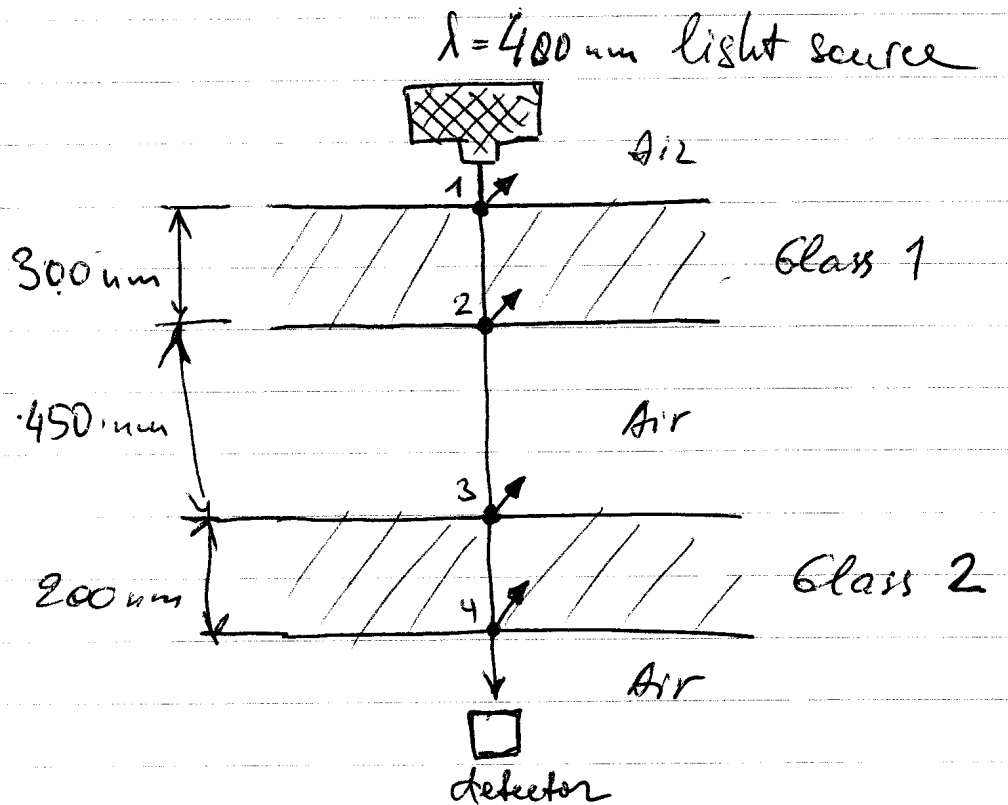 λ = 400 nm light source
Air
1
300 nm
Glass 1
2
450 nm
Air
3
200 nm
Glass 2
4
Air
detector